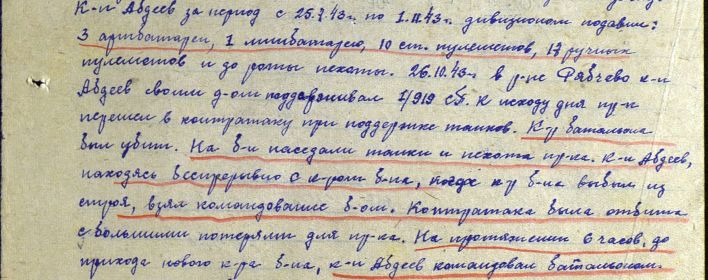 К-н Авдеев за период с 25.7.43г. по 1.11.43г. дивизионом подавил:
3 артбатареи, 1 минбатарею, 10 ст. пулеметов, 18 ручных
пулеметов и до роты пехоты. 26.10.43г. в р-не Рябчево к-н
Авдеев своим д-ом поддерживал 1/919 сп. К исходу дня пр-к
перешел в контратаку при поддержке танков. К-р батальона
был убит. На б-н наседали танки и пехота пр-ка. К-н Авдеев,
находясь беспрерывно с к-ром б-на, когда к-р б-на выбыл из
строя, взял командование б-ом. Контратака была отбита
с большими потерями для пр-ка. На протяжении 6 часов, до
прихода нового к-ра б-на, к-н Авдеев командовал батальоном.